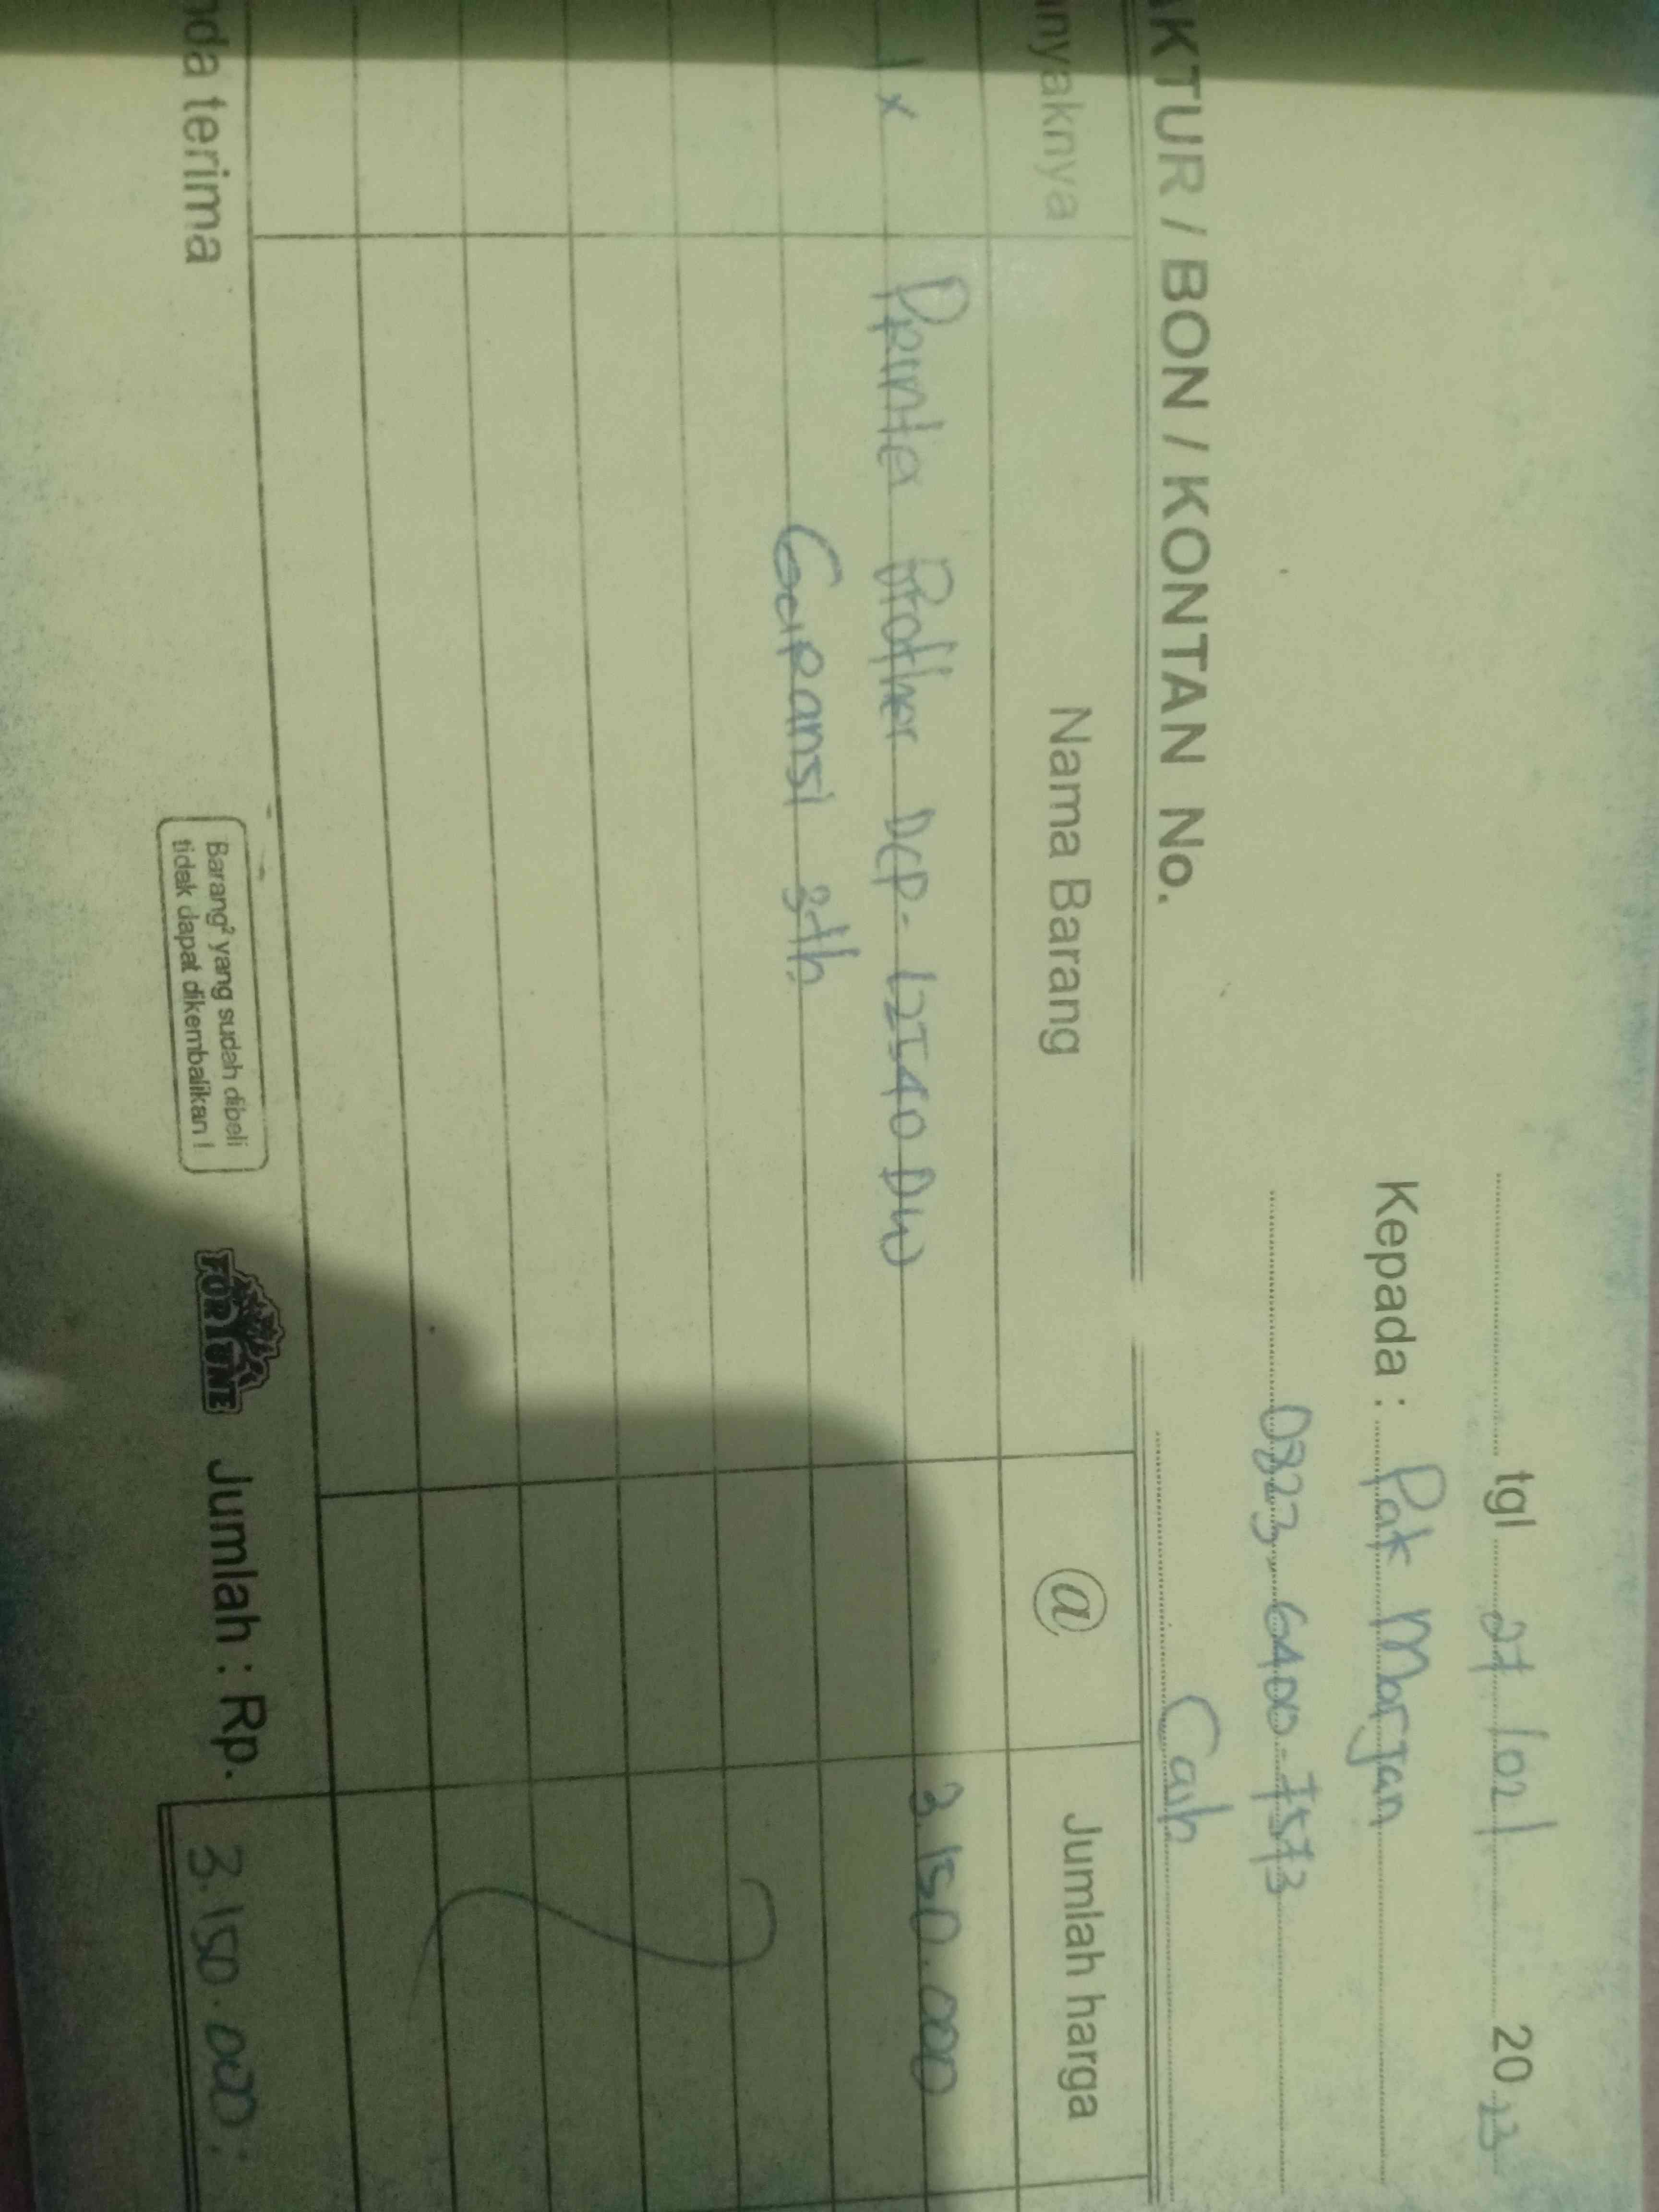 tgl 27/02/ 2023
Kepada : Pak Marjan
0823-6400-7573
Cash
AKTUR / BON / KONTAN No.
anyaknya Nama Barang @ Jumlah harga
1x Printer Brother DCP-L2540DW 3.150.000
Garansi 3th
nda terima
Barang² yang sudah dibeli
tidak dapat dikembalikan !
FORTUNE
Jumlah : Rp. 3.150.000